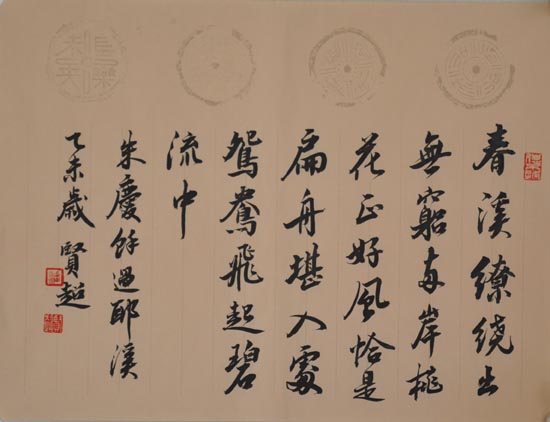 春溪繚繞出
無窮兩岸桃
花正好風恰是
扁舟堪入處
鴛鴦飛起碧
流中
朱慶餘過耶溪
乙未歲 賢超